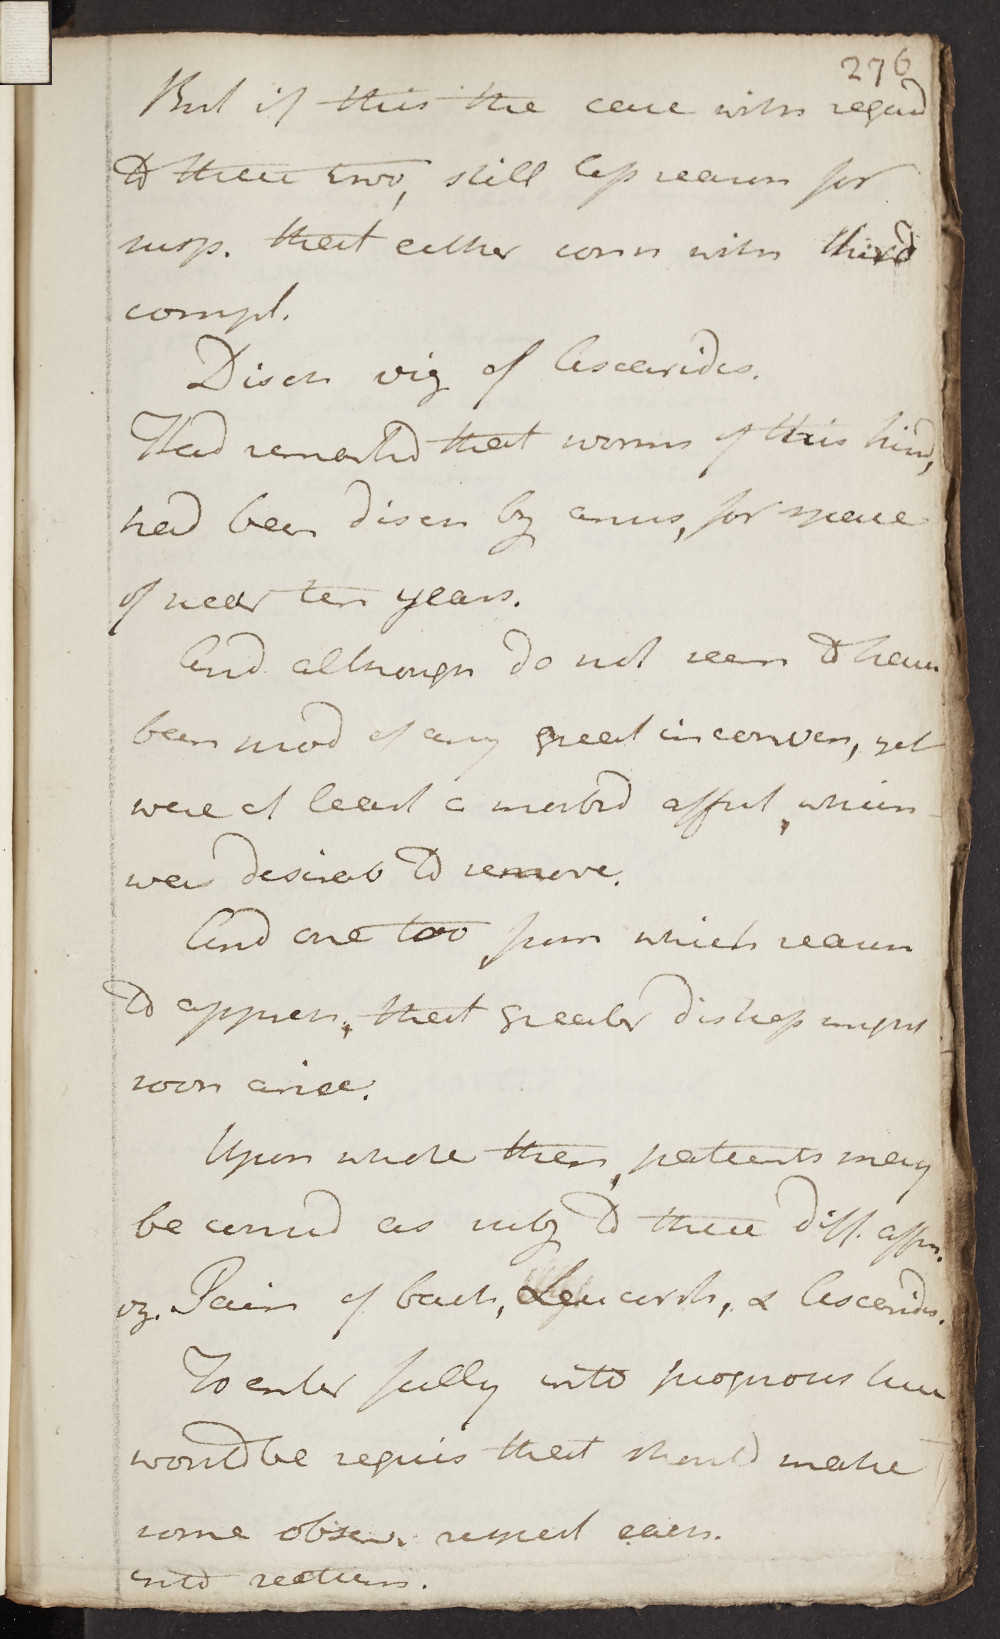 276
But if this the case with regard
to these two, still less reason for
susp. that either conn with third
compl.
Disch viz of Ascarides.
Had remarked that worms of this kind,
had been disch by anus, for space
of near ten years.
And although do not seem to have
been prod of any great inconven, yet
were at least a morbid affect, which
was desirab to remove.
And one too, from which reason
to appreh, that greater distress might
soon arise.
Upon whole then, patients may
be consid as subj to three diff. affns.
vz. Pain of back, Leucorrh, & Ascarides.
To enter fully into prognosis here
would be requis that should make
some obser. respect each.
into rectum.